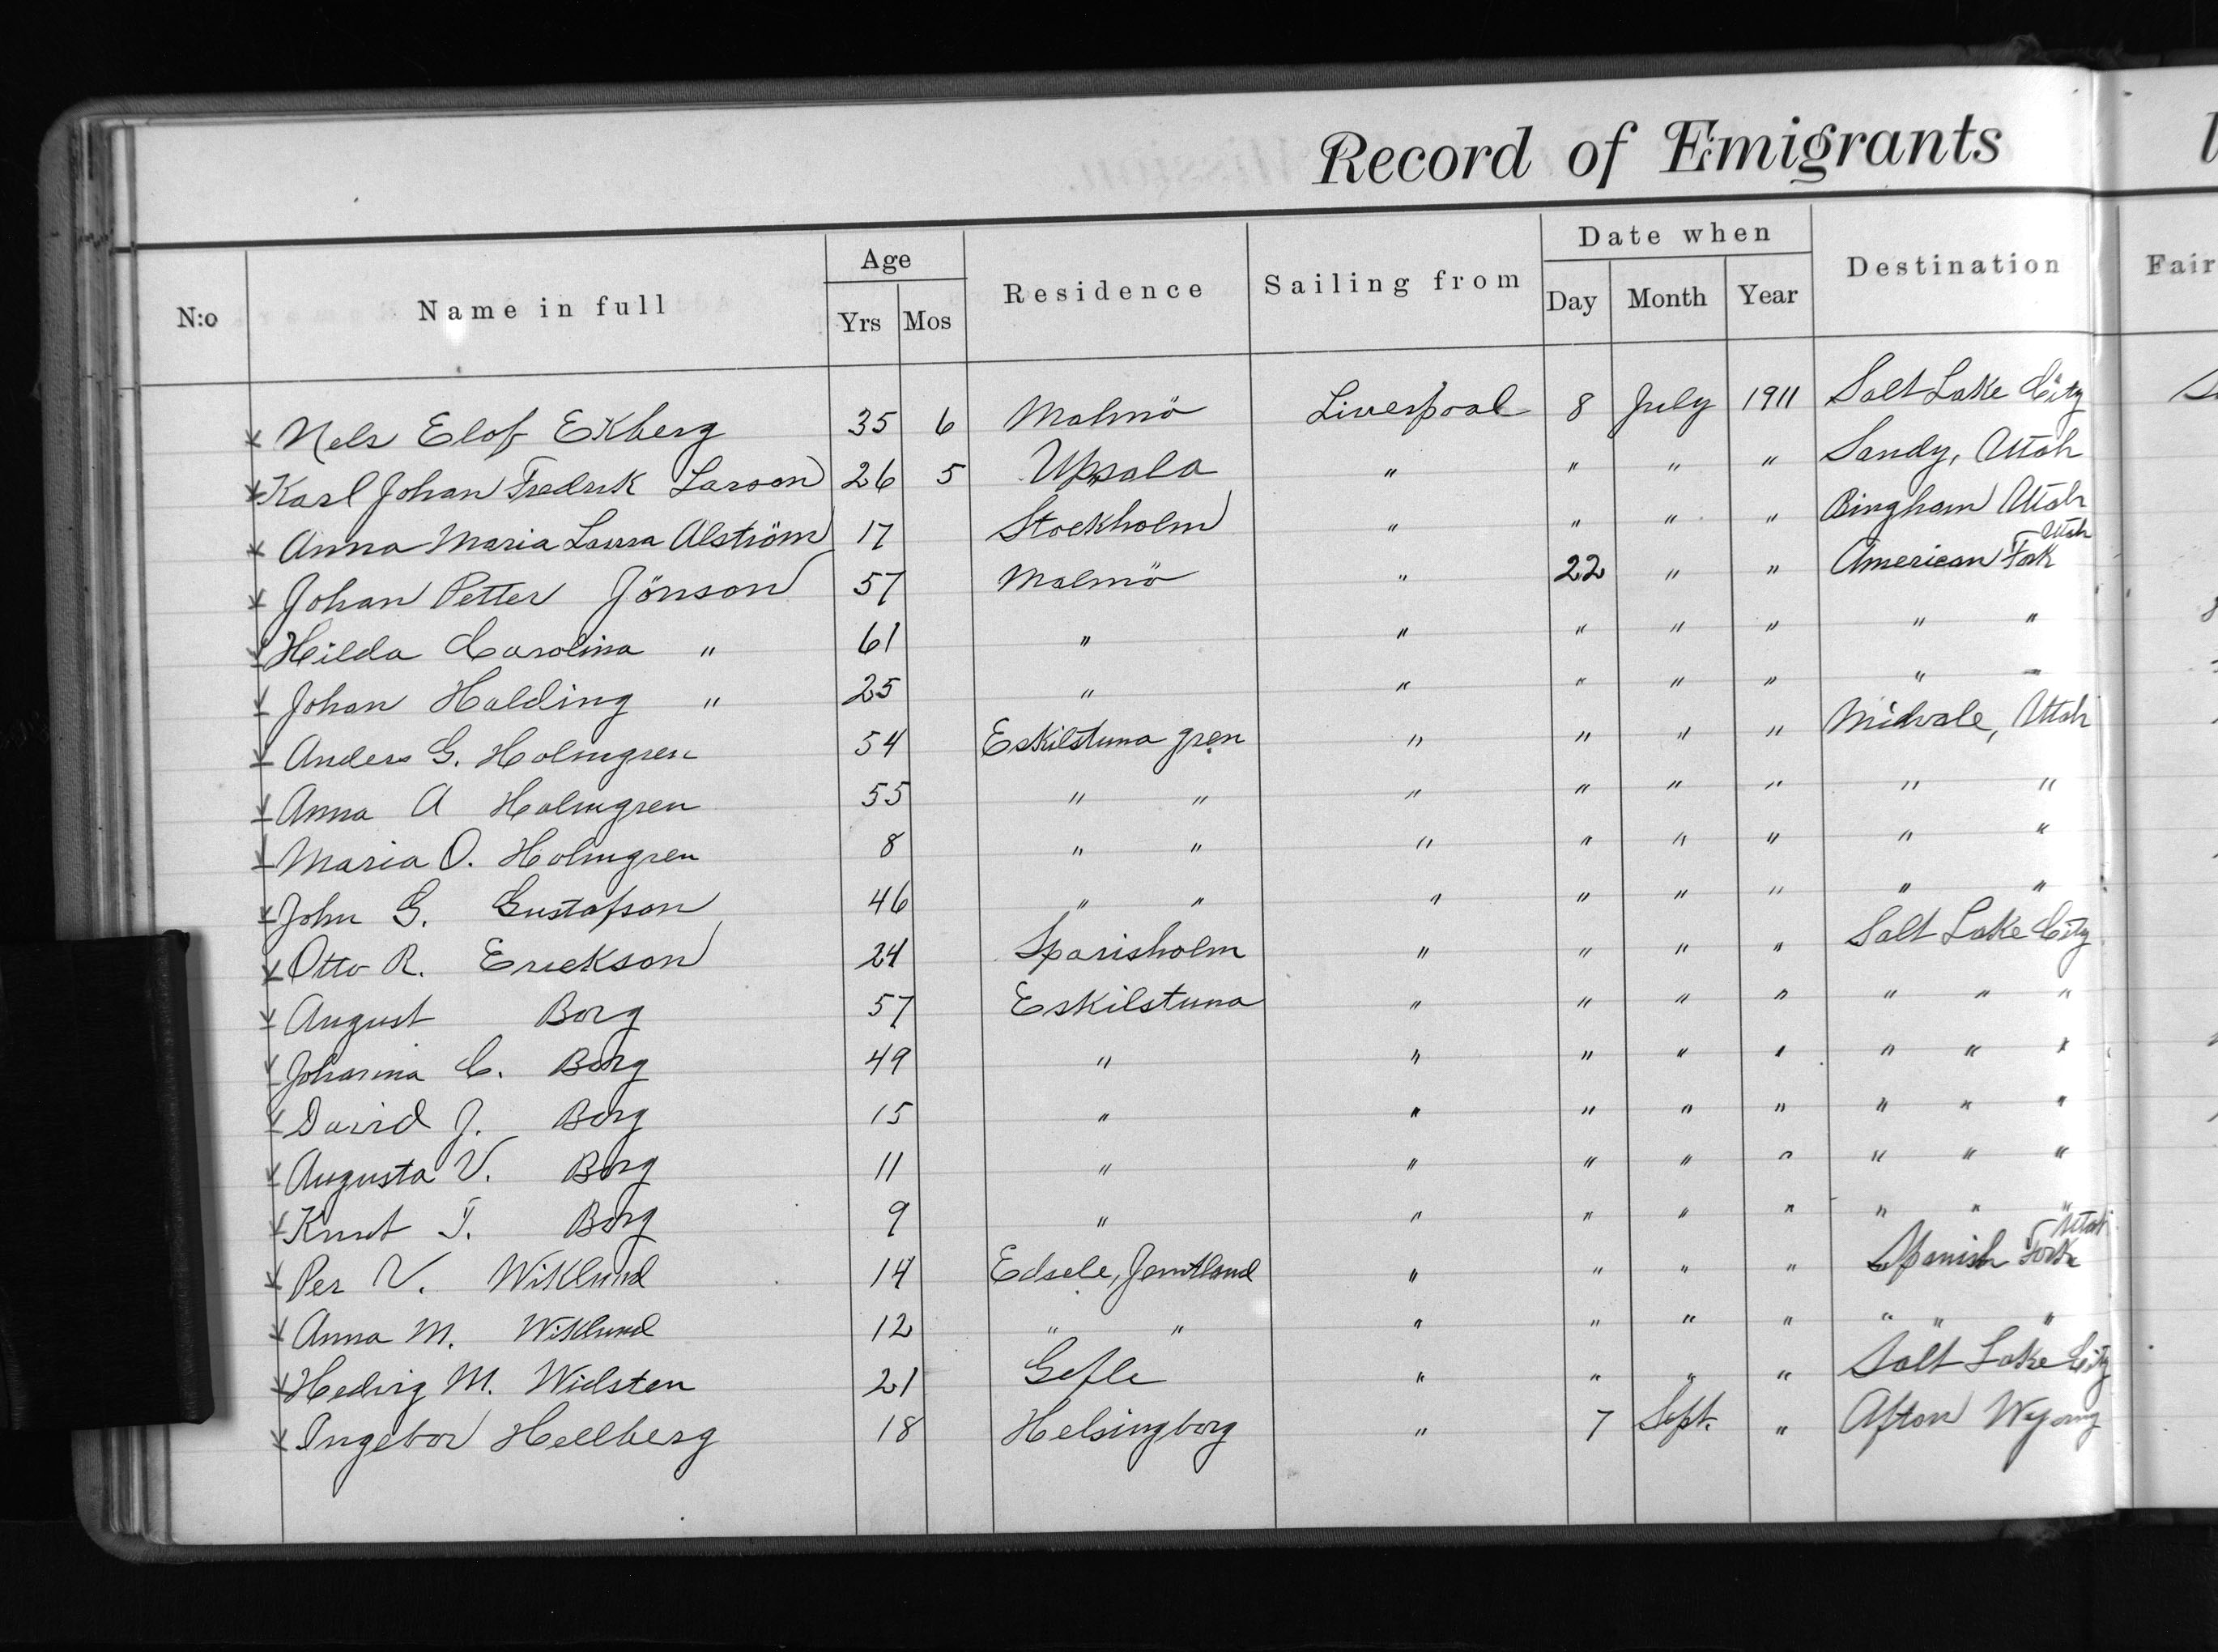 Record of Emigrants
N:o Name in full Age Yrs Mos Residence Sailing from Date when Day Month Year Destination Fair
Nels Elof Ekberg 35 6 Malmö Liverpool 8 July 1911 Salt Lake City
Karl Johan Fredrik Larson 26 5 Upsala " " " " Sandy, Utah
Anna Maria Laura Alström 17 Stockholm " " " " Bingham Utah
Johan Petter Jönson 57 Malmö " 22 " " American Fork Utah
Hilda Carolina " 61 " " " " " " "
Johan Halding " 25 " " " " " " "
Anders G. Holmgren 54 Eskilstuna gren " " " " Midvale, Utah
Anna A Holmgren 55 " " " " " " " "
Maria O. Holmgren 8 " " " " " " " "
John G. Gustafson 46 " " " " " " " "
Otto R. Erickson 24 Sparisholm " " " " Salt Lake City
August Borg 57 Eskilstuna " " " " " " "
Johanna C. Borg 49 " " " " " " " "
David J. Borg 15 " " " " " " " "
Augusta V. Borg 11 " " " " " " " "
Knut T. Borg 9 " " " " " " " "
Per V. Wiklund 14 Edsele, Jemtland " " " " Spanish Fork Utah
Anna M. Wiklund 12 " " " " " " " " "
Hedvig M. Widsten 21 Gefle " " " " Salt Lake City
Ingebor Hellberg 18 Helsingborg " 7 Sept. " Afton Wyomg